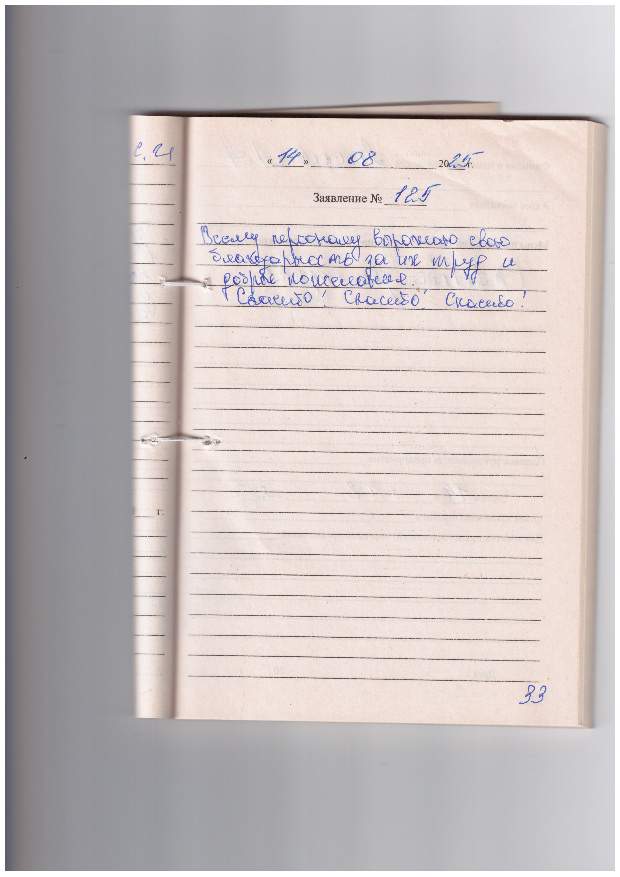 с. 21
« 14 » 08 2025 г.
Заявление № 125
Всему персоналу выражаю свою
благодарность за их труд и
добрые пожелания.
Спасибо! Спасибо! Спасибо!
г.
33